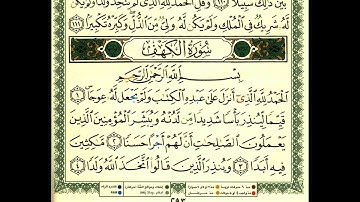 بَيْنَ ذَٰلِكَ سَبِيلًا ﴿١١٠﴾ وَقُلِ الْحَمْدُ لِلَّهِ الَّذِي لَمْ يَتَّخِذْ وَلَدًا وَلَمْ يَكُن
لَّهُ شَرِيكٌ فِي الْمُلْكِ وَلَمْ يَكُن لَّهُ وَلِيٌّ مِّنَ الذُّلِّ وَكَبِّرْهُ تَكْبِيرًا ﴿١١١﴾
سُورَةُ الْكَهْفِ
بِسْمِ اللَّهِ الرَّحْمَٰنِ الرَّحِيمِ
الْحَمْدُ لِلَّهِ الَّذِي أَنزَلَ عَلَىٰ عَبْدِهِ الْكِتَابَ وَلَمْ يَجْعَل لَّهُ عِوَجًا ﴿١﴾
قَيِّمًا لِّيُنذِرَ بَأْسًا شَدِيدًا مِّن لَّدُنْهُ وَيُبَشِّرَ الْمُؤْمِنِينَ الَّذِينَ
يَعْمَلُونَ الصَّالِحَاتِ أَنَّ لَهُمْ أَجْرًا حَسَنًا ﴿٢﴾ مَّاكِثِينَ
فِيهِ أَبَدًا ﴿٣﴾ وَيُنذِرَ الَّذِينَ قَالُوا اتَّخَذَ اللَّهُ وَلَدًا ﴿٤﴾
٢٩٣